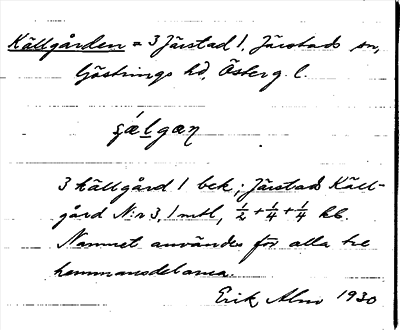 Källgården = 3 Järstad 1, Järstads sn,
Göstrings hd, Österg. l.
3 källgård 1 bek; Järstads Käll-
gård N:r 3, 1 mtl, 1/2 + 1/4 + 1/4 hb.
Namnet användes för alla tre
hemmansdelarna.
Erik Alm 1930